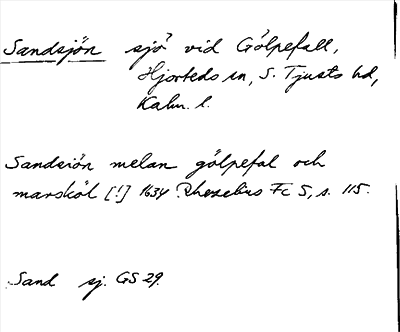 Sandsjön sjö vid Gölpefall,
Hjorteds sn, S. Tjusts hd,
Kalm. l.
Sandsiön melan gölpefal och
marsköl [!] 1634 Rhezelius Fc 5, s. 115.
Sand sj. GS 29.